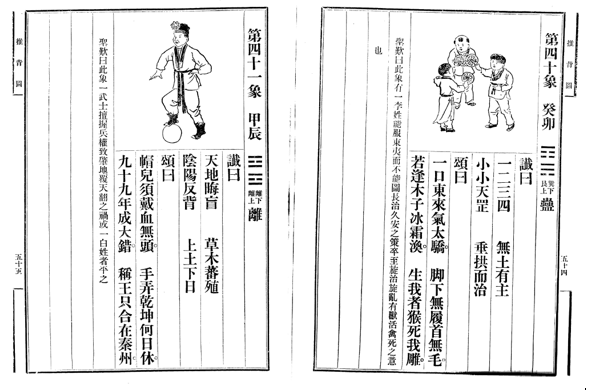 推背圖
五十四
第四十象 癸卯 巽下艮上 蠱
讖曰
一二三四 無土有主
小小天罡 垂拱而治
頌曰
一口東來氣太驕。 脚下無履首無毛。
若逢木子冰霜渙。 生我者猴死我雕。
聖歎曰此象有一李姓能服東夷而不能圖長治久安之策卒至旋治旋亂有獸活禽死之意
也
第四十一象 甲辰 離下離上 離
讖曰
天地晦盲 草木蕃殖
陰陽反背 上土下日
頌曰
帽兒須戴血無頭。 手弄乾坤何日休。
九十九年成大錯。 稱王只合在秦州。
聖歎曰此象一武士擅握兵權致肇地覆天翻之禍或一白姓者平之
推背圖
五十五